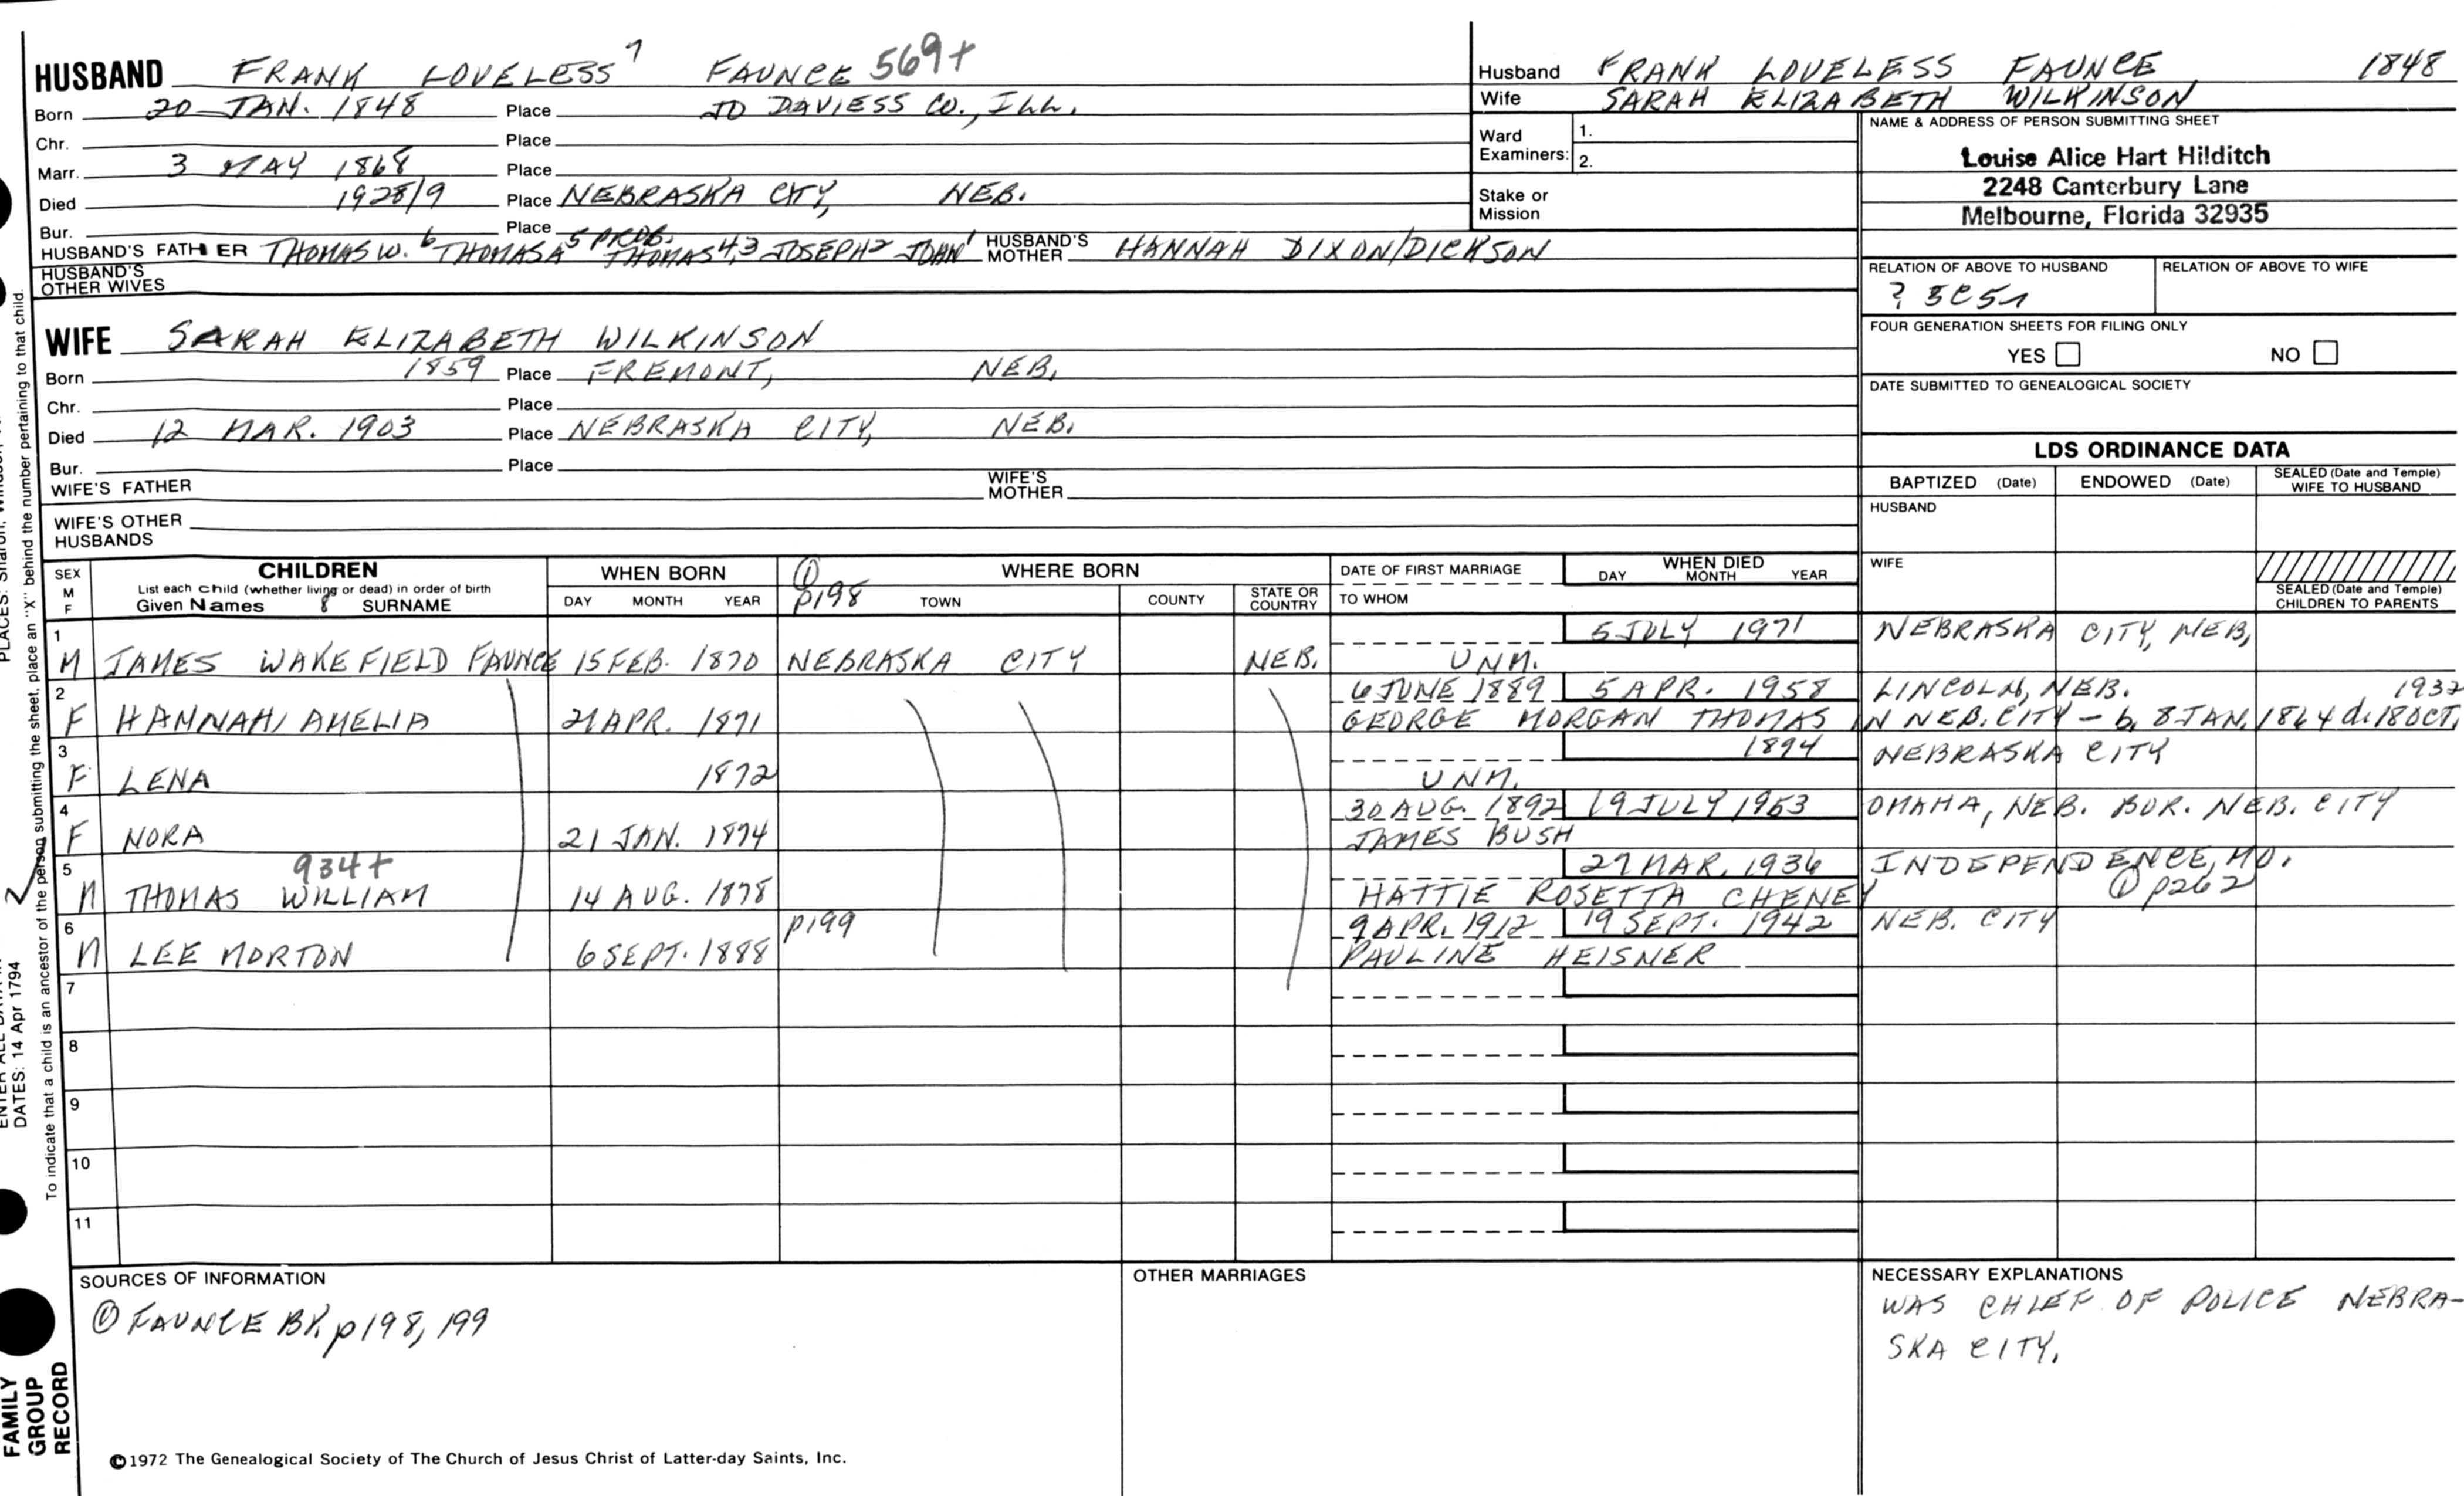 HUSBAND FRANK LOVELESS 7 FAUNCE 569+
Born 20 JAN. 1848 Place JO DAVIESS CO., ILL.
Chr. Place
Marr. 3 MAY 1868 Place
Died 1928/9 Place NEBRASKA CITY, NEB.
Bur. Place
HUSBAND'S FATHER THOMAS W.6 THOMAS A5 PROB. THOMAS4,3 JOSEPH2 JOHN1 HUSBAND'S MOTHER HANNAH DIXON/DICKSON
HUSBAND'S OTHER WIVES
Husband FRANK LOVELESS FAUNCE 1848
Wife SARAH ELIZABETH WILKINSON
Ward Examiners: 1.
2.
Stake or Mission
NAME & ADDRESS OF PERSON SUBMITTING SHEET
Louise Alice Hart Hilditch
2248 Canterbury Lane
Melbourne, Florida 32935
RELATION OF ABOVE TO HUSBAND RELATION OF ABOVE TO WIFE
? 5C51
FOUR GENERATION SHEETS FOR FILING ONLY
YES NO
DATE SUBMITTED TO GENEALOGICAL SOCIETY
WIFE SARAH ELIZABETH WILKINSON
Born 1859 Place FREMONT, NEB.
Chr. Place
Died 12 MAR. 1903 Place NEBRASKA CITY, NEB.
Bur. Place
WIFE'S FATHER WIFE'S MOTHER
WIFE'S OTHER HUSBANDS
LDS ORDINANCE DATA
BAPTIZED (Date) ENDOWED (Date) SEALED (Date and Temple) WIFE TO HUSBAND
HUSBAND
WIFE
SEALED (Date and Temple) CHILDREN TO PARENTS
SEX M F CHILDREN WHEN BORN ① p198 WHERE BORN DATE OF FIRST MARRIAGE WHEN DIED
List each child (whether living or dead) in order of birth
Given Names SURNAME DAY MONTH YEAR TOWN COUNTY STATE OR COUNTRY TO WHOM DAY MONTH YEAR
1 5 JULY 1971 NEBRASKA CITY, NEB,
M JAMES WAKEFIELD FAUNCE 15 FEB. 1870 NEBRASKA CITY NEB. UNM.
2 6 JUNE 1889 5 APR. 1958 LINCOLN, NEB. 1932
F HANNAH AMELIA 21 APR. 1871 GEORGE MORGAN THOMAS IN NEB. CITY - b. 8 JAN. 1864 d. 18 OCT.
3 1894 NEBRASKA CITY
F LENA 1872 UNM.
4 30 AUG. 1892 19 JULY 1953 OMAHA, NEB. BUR. NEB. CITY
F NORA 21 JAN. 1874 JAMES BUSH
5 934+ 27 MAR. 1936 INDEPENDENCE, MO.
M THOMAS WILLIAM 14 AUG. 1878 HATTIE ROSETTA CHENEY ① p262
6 p199 9 APR. 1912 19 SEPT. 1942 NEB. CITY
M LEE MORTON 6 SEPT. 1888 PAULINE HEISNER
7
8
9
10
11
SOURCES OF INFORMATION
① FAUNCE BK. p198, 199
OTHER MARRIAGES
NECESSARY EXPLANATIONS
WAS CHIEF OF POLICE NEBRA-
SKA CITY.
©1972 The Genealogical Society of The Church of Jesus Christ of Latter-day Saints, Inc.
To indicate that a child is an ancestor of the person submitting the sheet, place an "X" behind the number pertaining to that child.
DATES: 14 Apr 1794
FAMILY
GROUP
RECORD